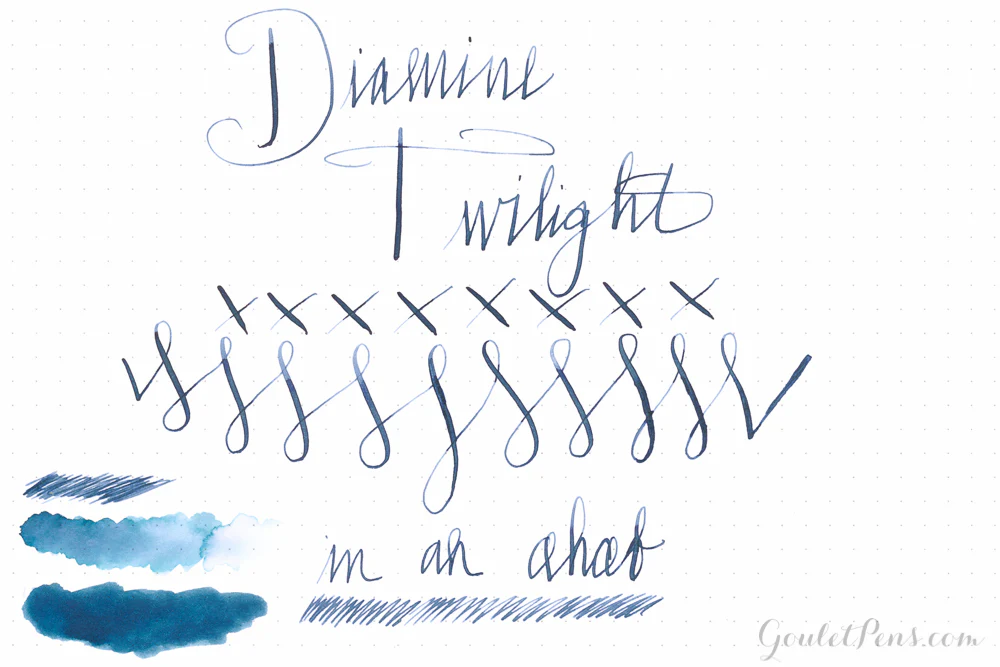 Diamine
Twilight
x x x x x x x x
in an ahab
GouletPens.com